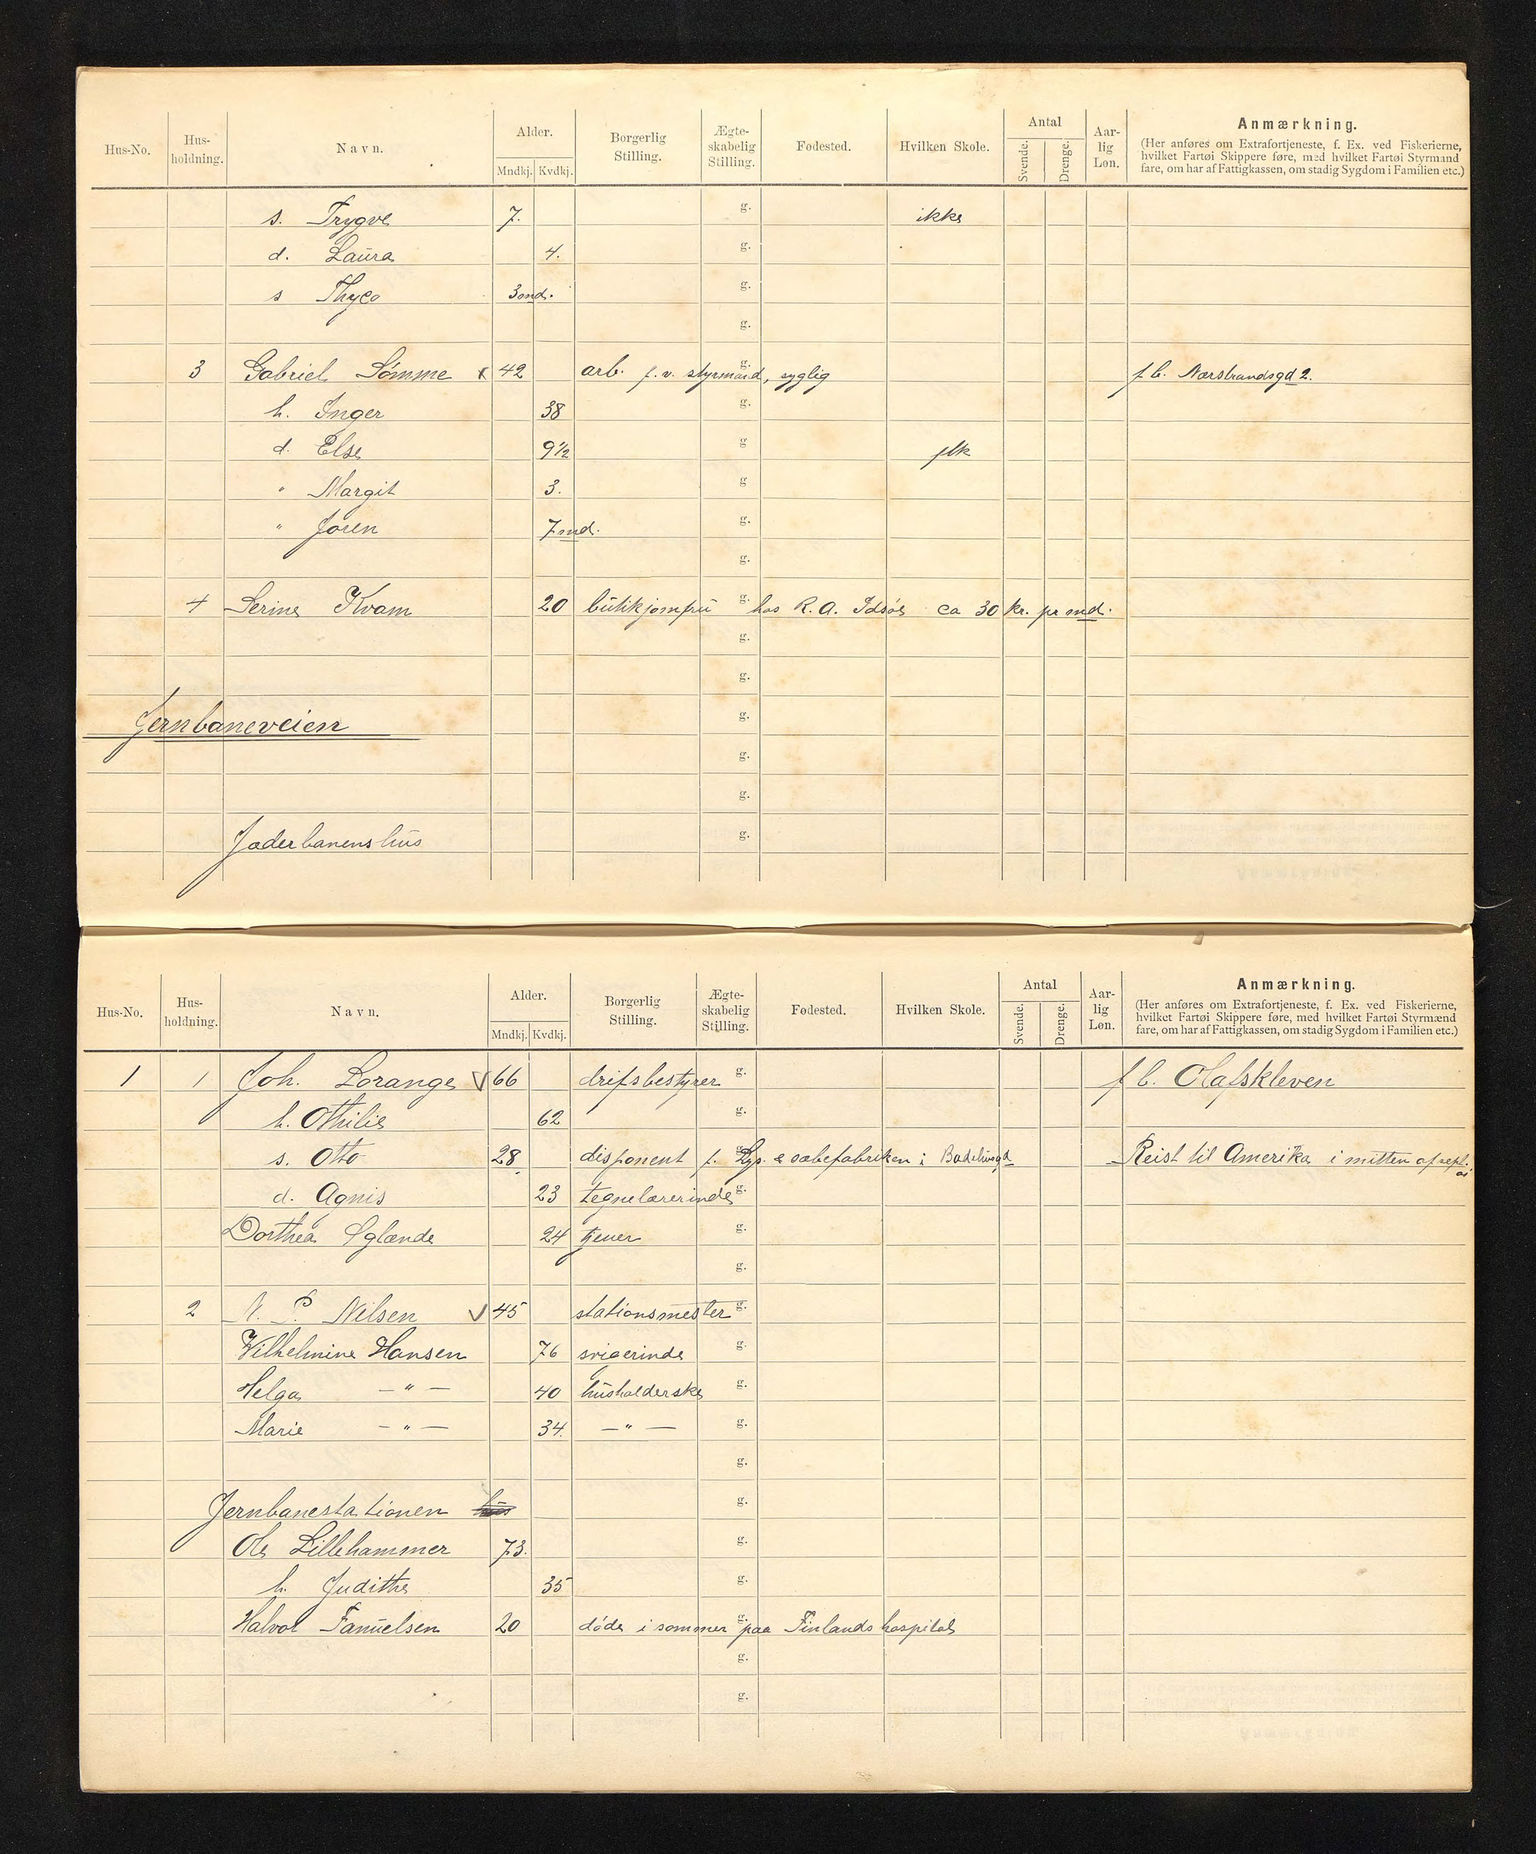 Hus-No. Hus-holdning. Navn. Alder. Mndkj. Kvdkj. Borgerlig Stilling. Ægte-skabelig Stilling. Fødested. Hvilken Skole. Antal Svende. Drenge. Aar-lig Løn. Anmærkning.
(Her anføres om Extrafortjeneste, f. Ex. ved Fiskerierne,
hvilket Fartøi Skippere føre, med hvilket Fartøi Styrmænd
fare, om har af Fattigkassen, om stadig Sygdom i Familien etc.)
s. Trygve 7. g. ikke
d. Laura 4. g.
s Thyco 3 md. g.
g.
3 Gabriel Sømme 42 arb. f. v. styrmand, syglig g. f b. Nærstrandsgd 2.
h. Inger 38 g.
d. Else 9 1/2 g. flk
" Margit 3. g
" Joren 7 md. g.
g.
4 Serine Kvam 20 butikjomfru g. hos R. A. Idsøe ca 30 kr. pr md.
g.
g.
Jernbaneveien g.
g.
g.
Jæderbanens hus g.
Hus-No. Hus-holdning. Navn. Alder. Mndkj. Kvdkj. Borgerlig Stilling. Ægte-skabelig Stilling. Fødested. Hvilken Skole. Antal Svende. Drenge. Aar-lig Løn. Anmærkning.
(Her anføres om Extrafortjeneste, f. Ex. ved Fiskerierne,
hvilket Fartøi Skippere føre, med hvilket Fartøi Styrmænd
fare, om har af Fattigkassen, om stadig Sygdom i Familien etc.)
1 1 Joh. Lorange 66 drifsbestyrer g. f b. Olafskleven
h. Othilie 62 g.
s. Otto 28 disponent f. Lys. & sæbefabriken i g. Reist til Amerika i mitten af sept.
d. Agnis 23 tegnelærerinde g.
Dorthea Øglænde 24 tjener g.
g.
2 N. P. Nilsen 45 stationsmester g.
Wilhelmine Hansen 76 svigerinde g.
Helga — " — 40 husholderske g.
Marie — " — 34. — " — g.
g.
Jernbanestationen hus g.
Ole Lillehammer 73. g.
h. Judithe 35 g.
Halvol Fanuelsen 20 døde i sommer paa Finlands hospital g.
g.
g.